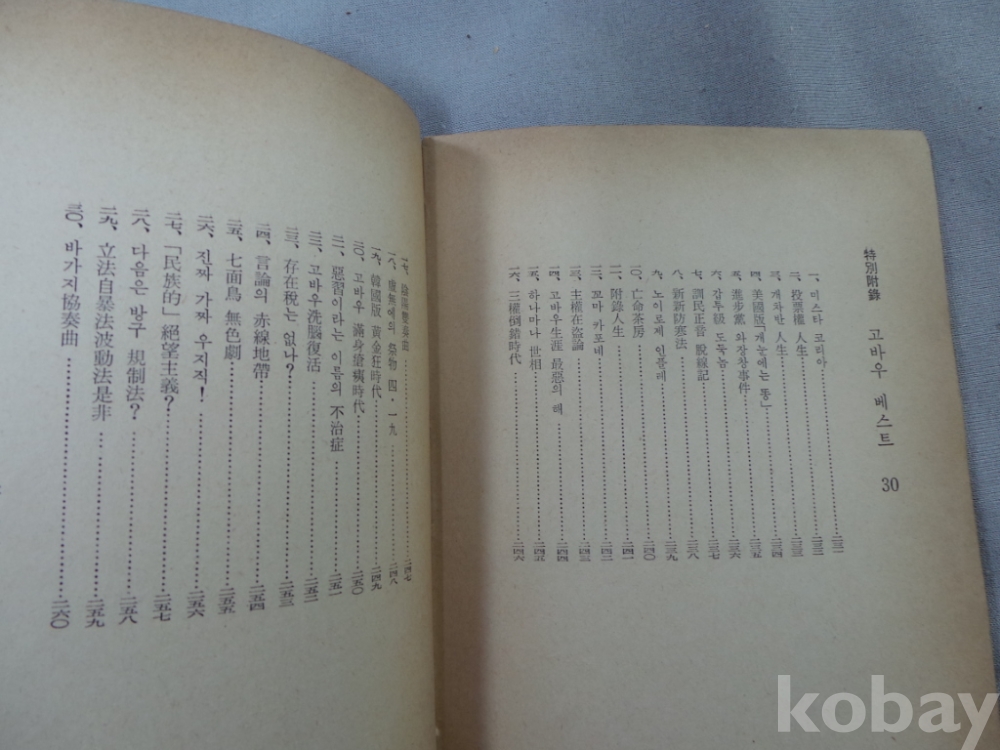 特別附錄 고바우 베스트 30
一、미스타 코리아……二三一
二、投票權 人生……二三二
三、개차반 人生……二三三
四、美國版「개눈에는 똥」……二三四
五、進步黨 와장창事件……二三五
六、감투級 도둑놈……二三六
七、訓民正音 脫線記……二三七
八、新新防寒法……二三八
九、노이로제 인플레……二三九
一〇、亡命茶房……二四〇
一一、附錄人生……二四一
一二、꼬마 카포네……二四二
一三、主權在盜論……二四三
一四、고바우生涯 最惡의 해……二四四
一五、하나마나 世相……二四五
一六、三權倒錯時代……二四六
一七、……二四七
一八、虛無에의 祭物 四・一九……二四八
一九、韓國版 黃金狂時代……二四九
二〇、고바우 滿身瘡痍時代……二五〇
二一、惡習이라는 이름의 不治症……二五一
二二、고바우洗腦復活……二五二
二三、存在稅는 없나?……二五三
二四、言論의 赤線地帶……二五四
二五、七面鳥 無色劇……二五五
二六、진짜 가짜 우지직!……二五六
二七、「民族的」絕望主義?……二五七
二八、다음은 방구 規制法?……二五八
二九、立法自暴法波動法是非……二五九
三〇、바가지協奏曲……二六〇
kobay